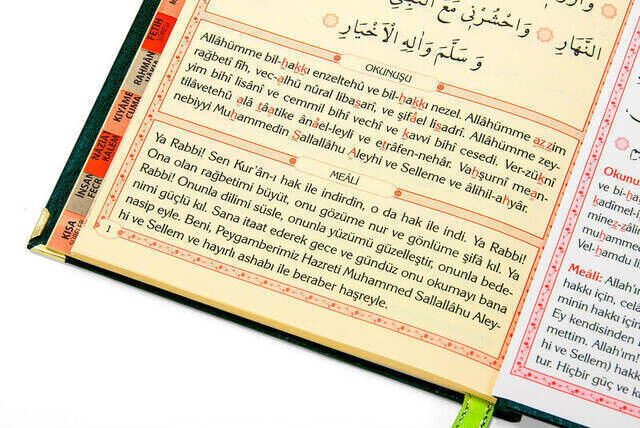 النَّهَارِ ۞ وَاحْشُرْنِي مَعَ النَّبِيِّ
وَسَلَّمَ وَاٰلِهِ الْاَخْيَارِ
OKUNUŞU
Allâhümme bil-hakkı enzeltehû ve bil-hakkı nezel. Allâhümme azzim
rağbetî fîh, vec-alhü nûral libasarî, ve şifâel lisadrî. Allâhümme zey-
yim bihî lisânî ve cemmil bihî vechî ve kavvi bihî cesedî. Ver-züknî
tilâvetehû alâ tâatike ânâel-leyli ve etrâfen-nehâr. Vahşurnî mean-
nebiyyi Muhammedin Sallallâhu Aleyhi ve Selleme ve âlihil-ahyâr.
MEÂLİ
Ya Rabbi! Sen Kur'ân-ı hak ile indirdin, o da hak ile indi. Ya Rabbi!
Ona olan rağbetimi büyüt, onu gözüme nur ve gönlüme şifâ kıl. Ya
Rabbi! Onunla dilimi süsle, onunla yüzümü güzelleştir, onunla bede-
nimi güçlü kıl. Sana itaat ederek gece ve gündüz onu okumayı bana
nasip eyle. Beni, Peygamberimiz Hazreti Muhammed Sallallâhu Aley-
hi ve Sellem ve hayırlı ashabı ile beraber haşreyle.
1
FETİH
RAHMÂN
KIYÂME
CUMA
NAZİAT
KALEM
İNSAN
FECR
KISA
Okunu
ve bi-h
kadîmel-
minez-zâli
muham
Vel-hamdu l
Meâli: Allah'ı
hakkı için, cel
minin hakkı için
Ey kendisinden
mettim. Allah'ım!
hi ve Sellem) hakk
tur. Hiçbir güç ve k